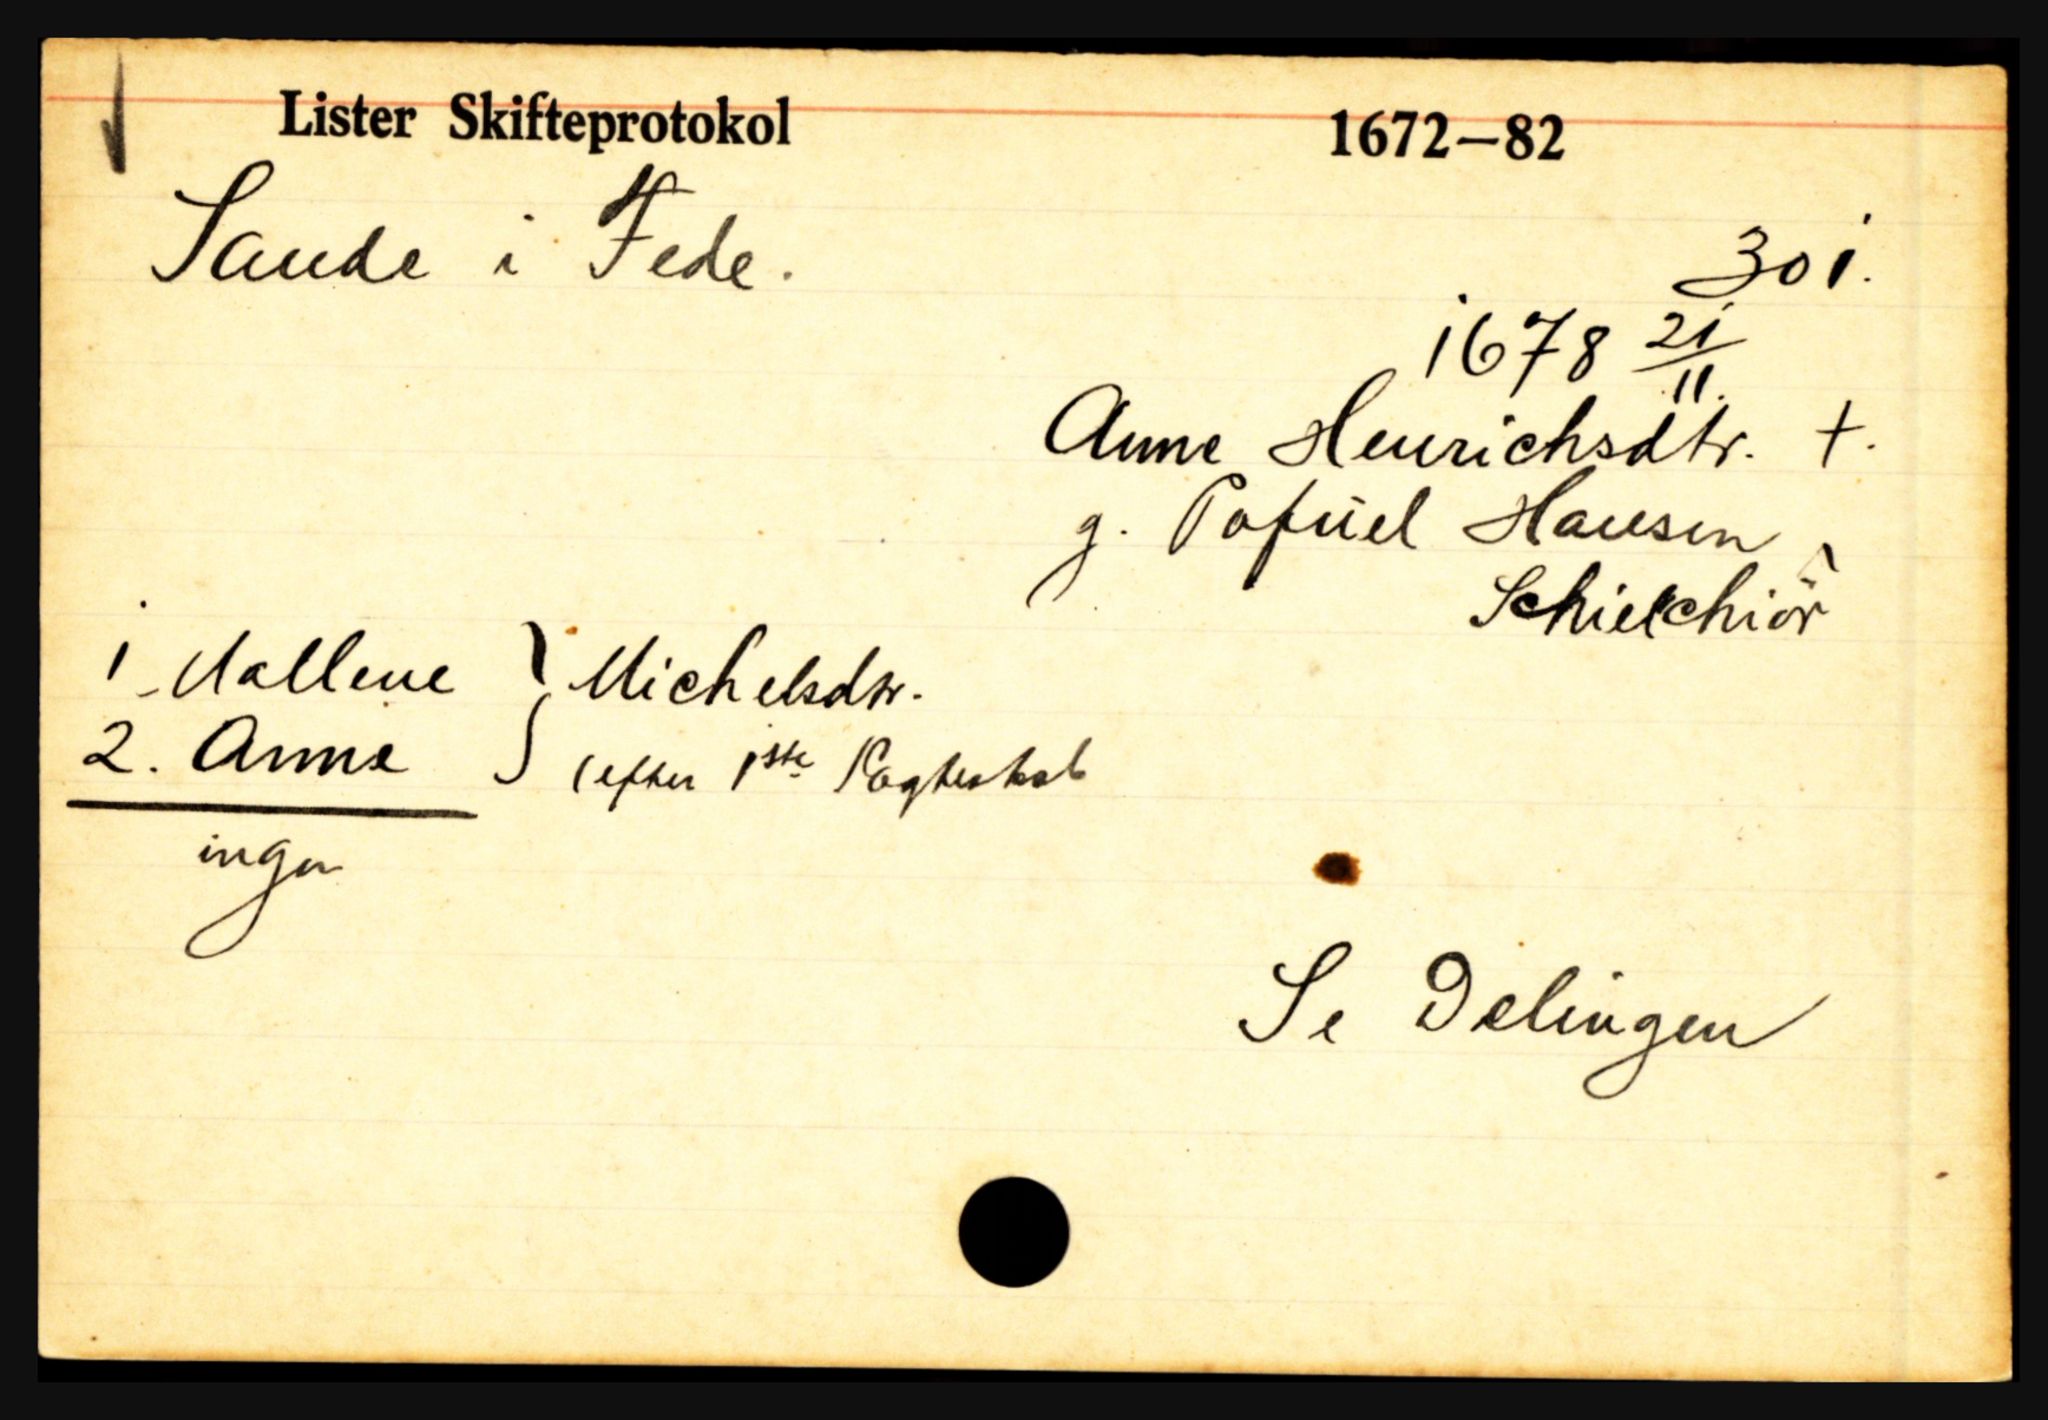 Lister Skifteprotokol 1672–82
Sande i Fede.
301.
1678 21/11.
Anne Henrichsdtr. †.
g. Pofuel Hansen
Schielchiör
1. Mallene } Michelsdtr.
2. Anne } (efter 1ste Egteskab
ingen
Se Delingen